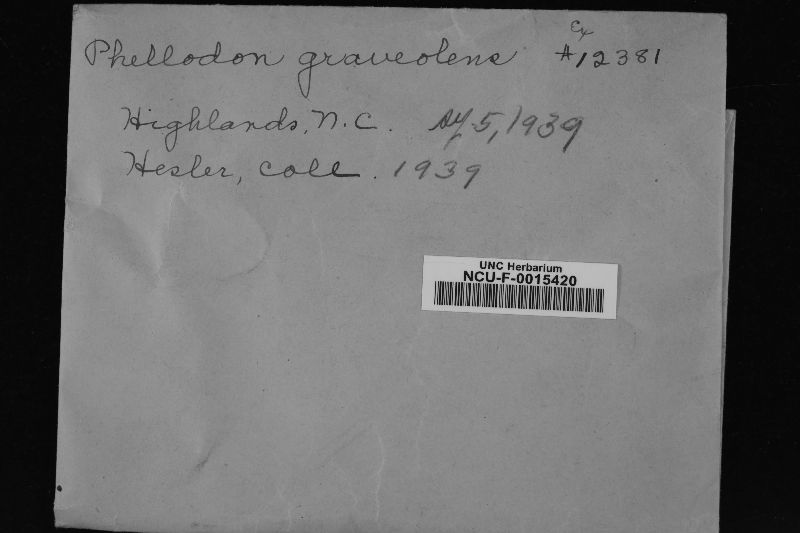 Phellodon graveolens Ex #12381
Highlands, N.C. 5, 1939
Hesler, coll. 1939
UNC Herbarium
NCU-F-0015420